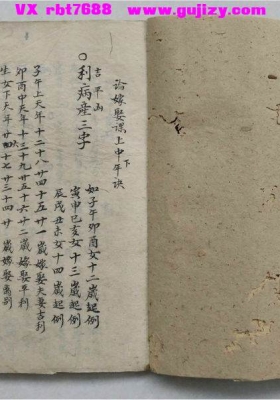 VX rbt7688 www.gujizy.com
論嫁娶課上中下年訣
如子午卯酉女十二歲起例
寅申巳亥女十三歲起例
辰戌丑未女十四歲起例
吉平凶
○利病産三字
子午上天年十二十八廿四十五廿一歲嫁娶夫妻吉利
卯酉中天年十三十九廿五十六廿二歲嫁娶平利
生女下天年廿四十七廿三十四廿歲嫁娶